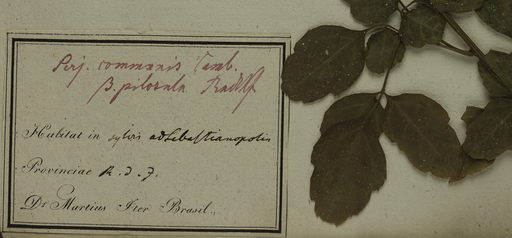 Serj. communis Camb.
β. pilosula Radlk
Habitat in sylvis ad Sebastianopolin
Provinciae R. d. J.
Dr Martius Iter Brasil.